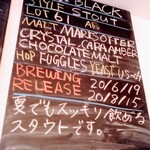 BLACK
STYLE STOUT
LOT 61 ABV
MALT MARISOTTER
CRYSTAL CARA AMBER
CHOCOLATE MALT
HOP FUGGLES YEAST US-04
BREWING 20/6/19
RELEASE 20/8/15
夏でもスッキリ飲める
スタウトです。